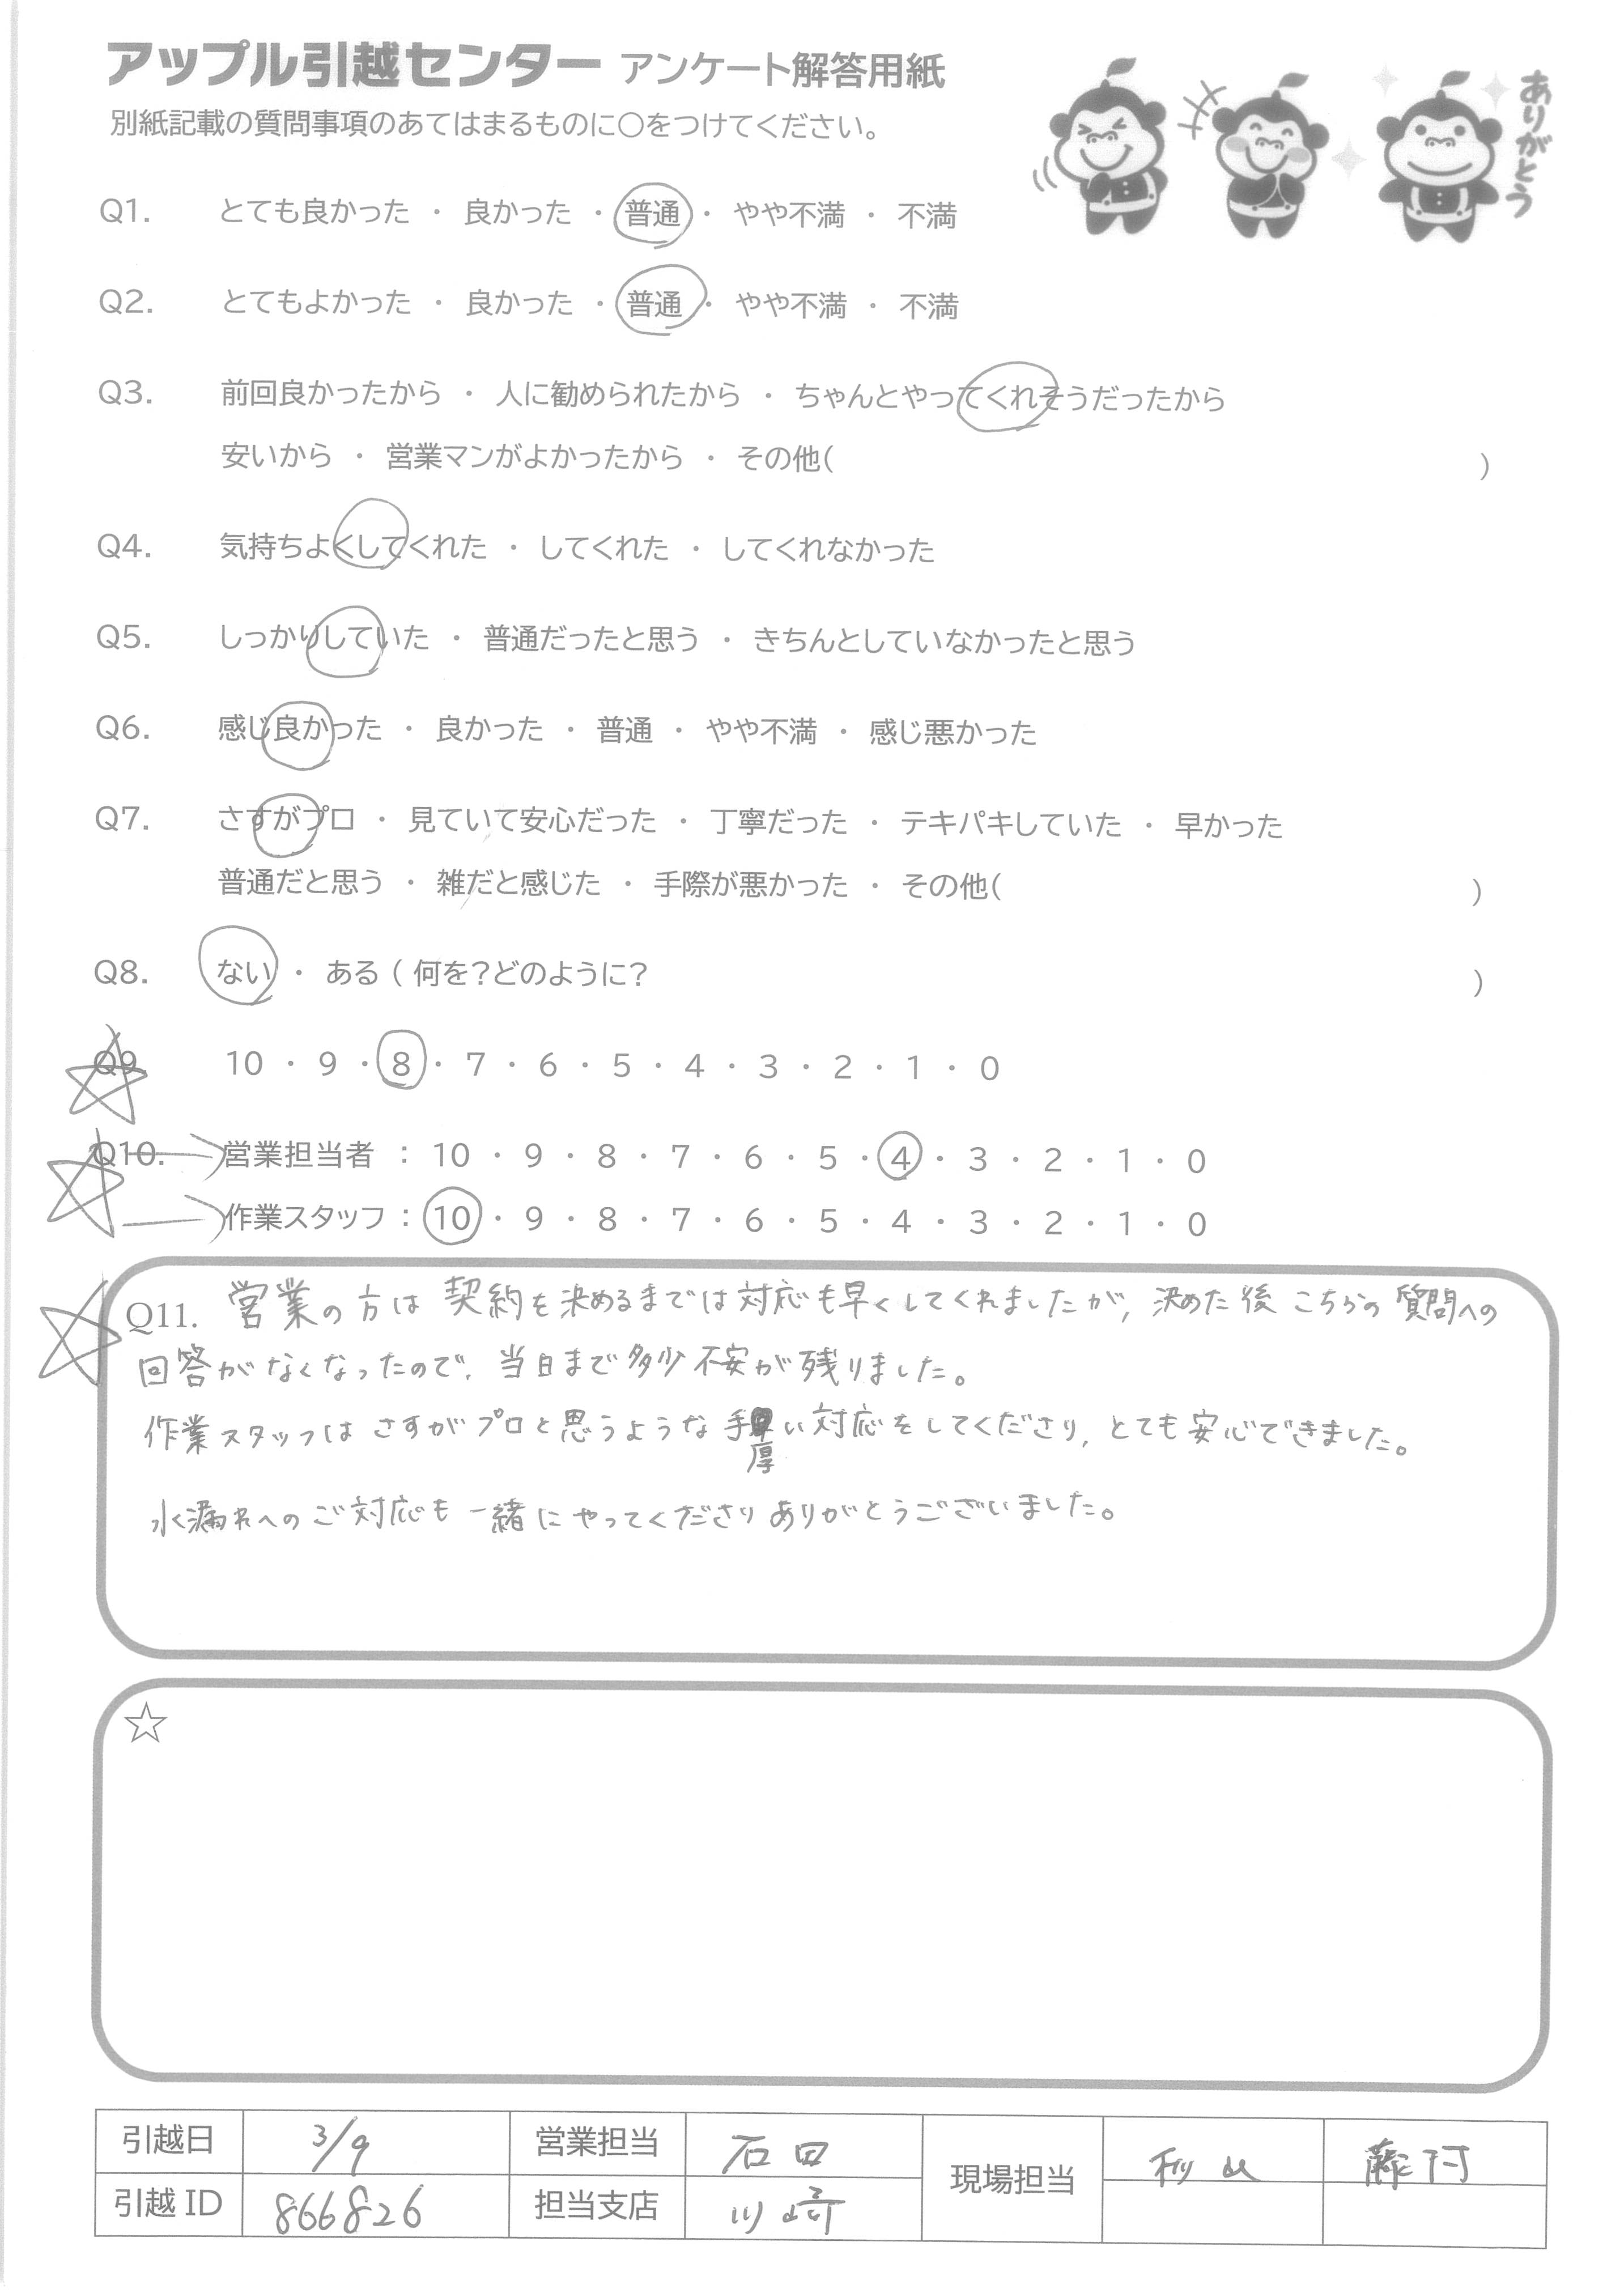 アップル引越センター アンケート解答用紙
ありがとう
別紙記載の質問事項のあてはまるものに○をつけてください。
Q1. とても良かった ・ 良かった ・ 普通 ・ やや不満 ・ 不満
Q2. とてもよかった ・ 良かった ・ 普通 ・ やや不満 ・ 不満
Q3. 前回良かったから ・ 人に勧められたから ・ ちゃんとやってくれそうだったから
安いから ・ 営業マンがよかったから ・ その他( )
Q4. 気持ちよくしてくれた ・ してくれた ・ してくれなかった
Q5. しっかりしていた ・ 普通だったと思う ・ きちんとしていなかったと思う
Q6. 感じ良かった ・ 良かった ・ 普通 ・ やや不満 ・ 感じ悪かった
Q7. さすがプロ ・ 見ていて安心だった ・ 丁寧だった ・ テキパキしていた ・ 早かった
普通だと思う ・ 雑だと感じた ・ 手際が悪かった ・ その他( )
Q8. ない ・ ある ( 何を?どのように? )
Q9. 10 ・ 9 ・ 8 ・ 7 ・ 6 ・ 5 ・ 4 ・ 3 ・ 2 ・ 1 ・ 0
Q10. 営業担当者 : 10 ・ 9 ・ 8 ・ 7 ・ 6 ・ 5 ・ 4 ・ 3 ・ 2 ・ 1 ・ 0
作業スタッフ : 10 ・ 9 ・ 8 ・ 7 ・ 6 ・ 5 ・ 4 ・ 3 ・ 2 ・ 1 ・ 0
Q11. 営業の方は契約を決めるまでは対応も早くしてくれましたが, 決めた後こちらの質問への
回答がなくなったので、当日まで多少不安が残りました。
作業スタッフはさすがプロと思うような手厚い対応をしてくださり, とても安心できました。
水漏れへのご対応も一緒にやってくださりありがとうございました。
☆
引越日 3/9 営業担当 石田 現場担当 秋山 藤村
引越ID 866826 担当支店 川崎